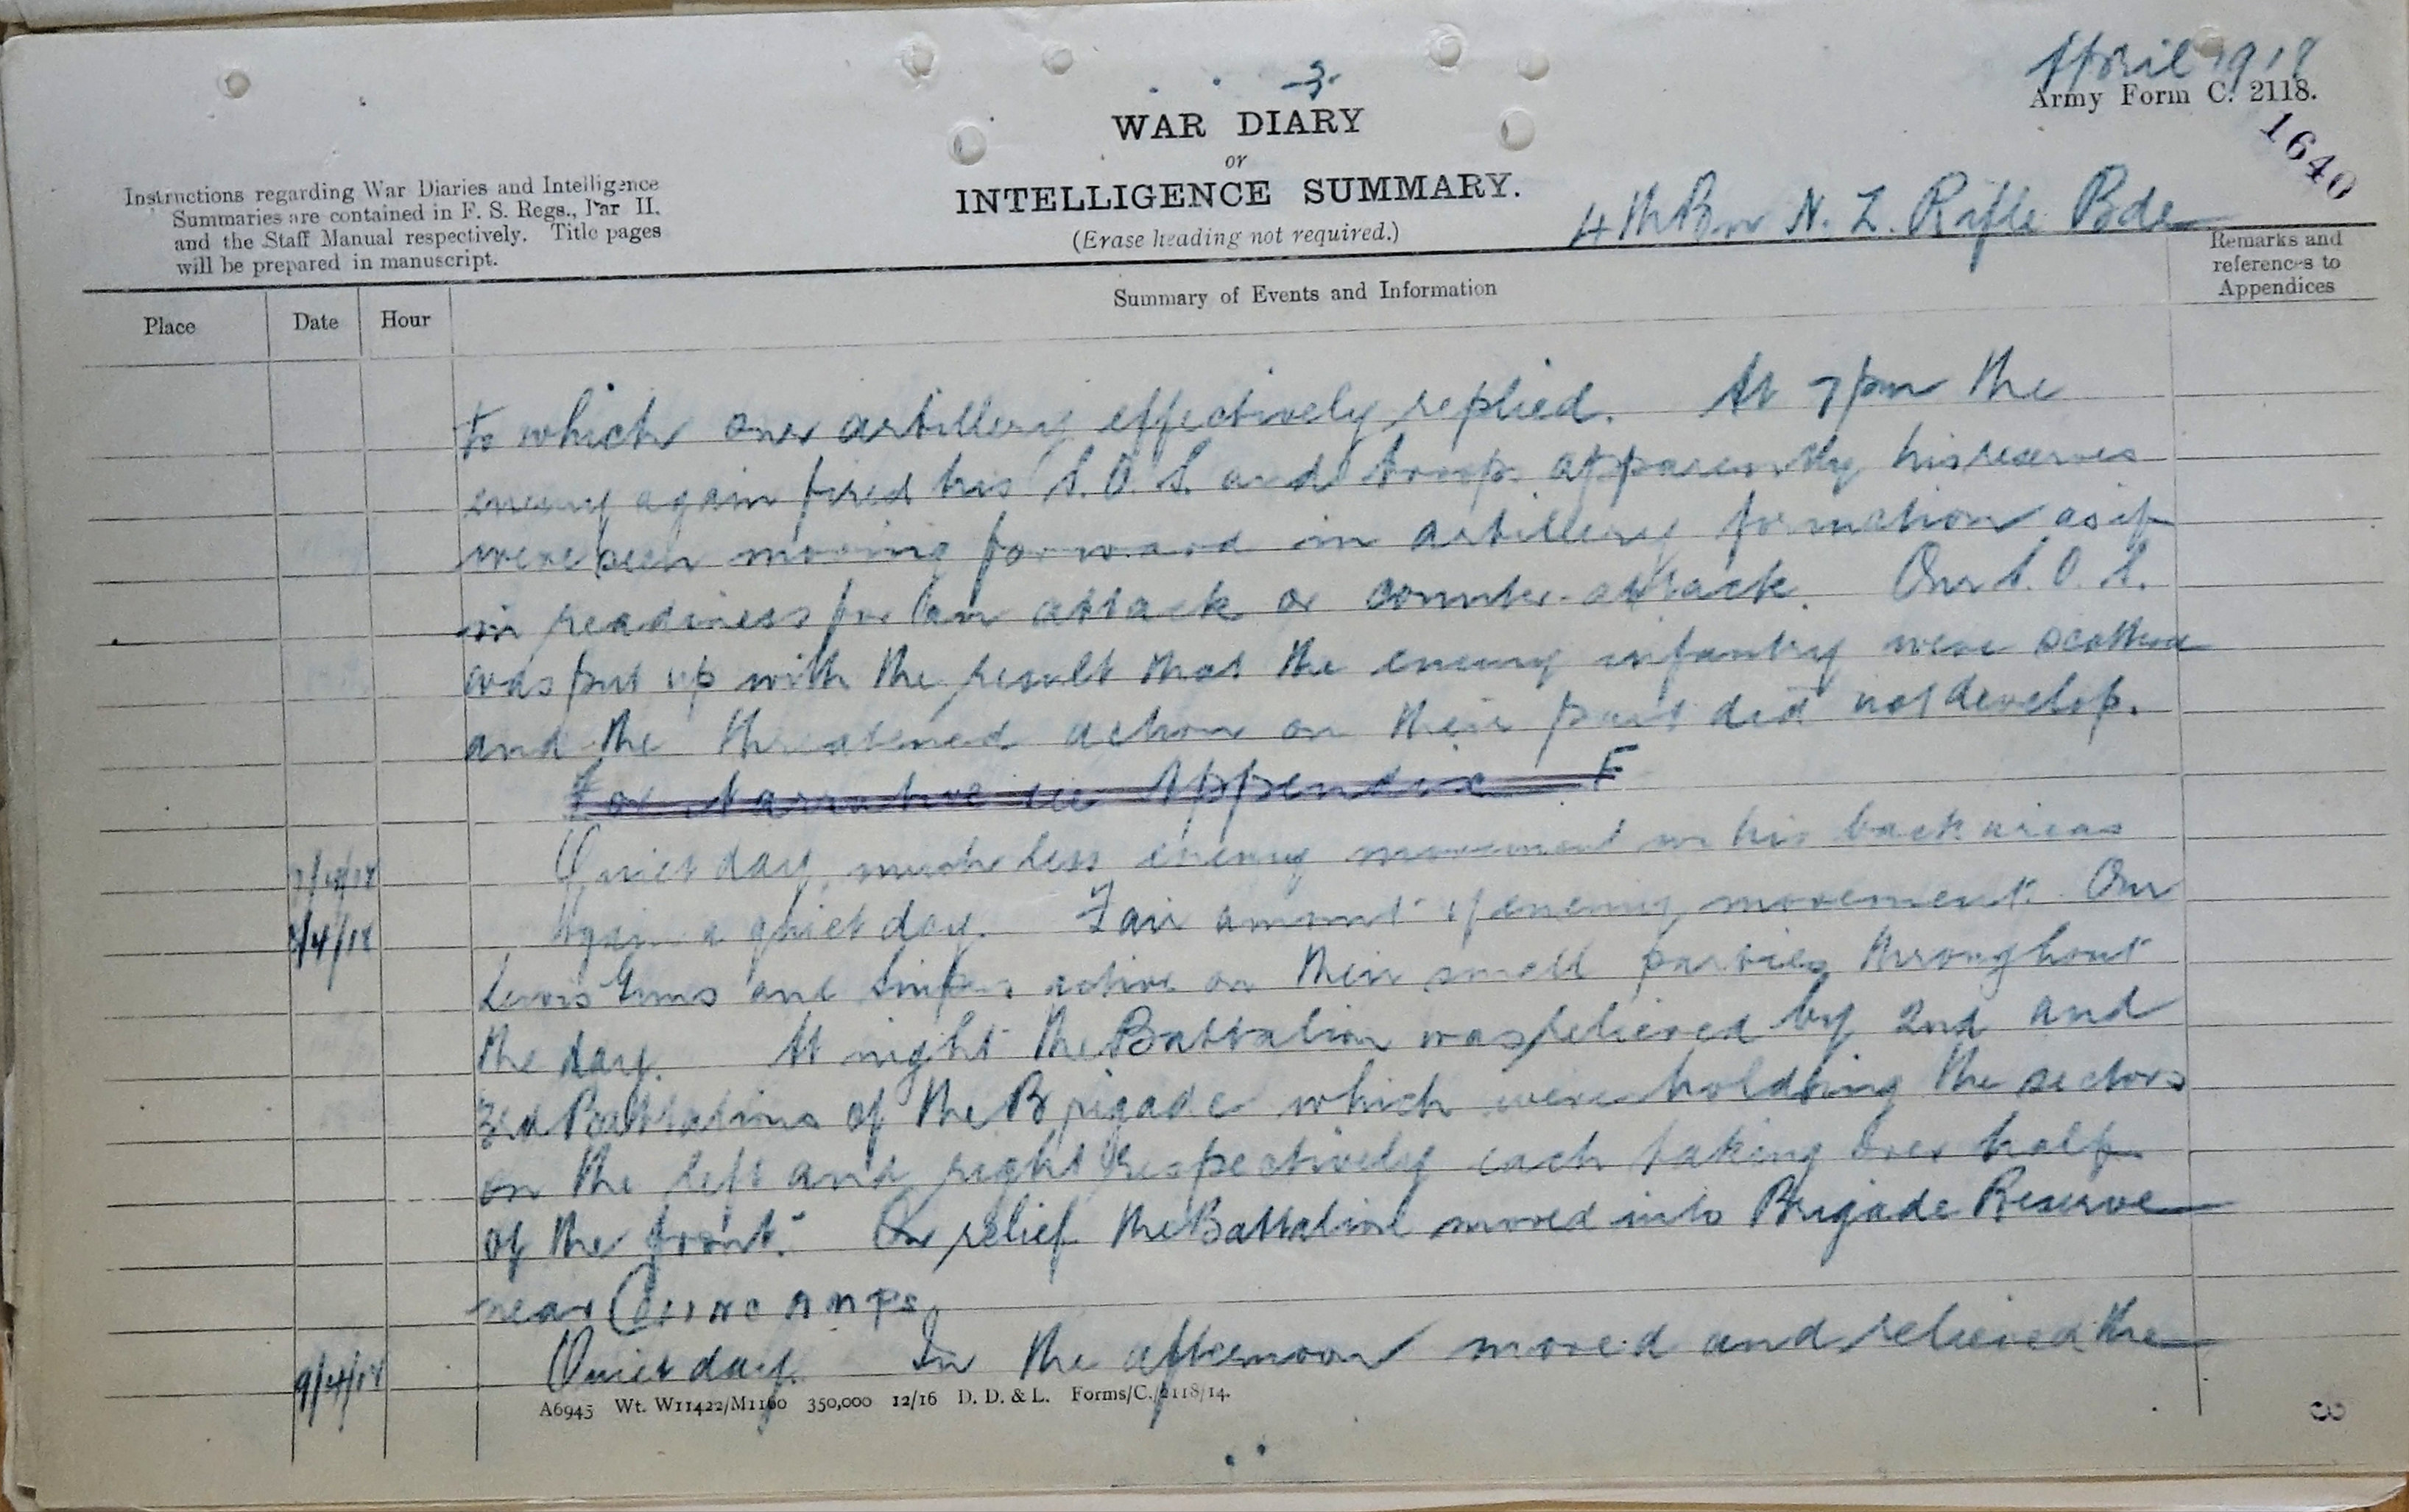 April 1918
-3-
WAR DIARY
Army Form C. 2118.
or
1640
INTELLIGENCE SUMMARY.
(Erase heading not required.)
4th Bn N. Z. Rifle Bde
Instructions regarding War Diaries and Intelligence
Summaries are contained in F. S. Regs., Par II.
and the Staff Manual respectively. Title pages
will be prepared in manuscript.
Place Date Hour Summary of Events and Information
Remarks and
references to
Appendices
to which our artillery effectively replied. At 7pm the
enemy again fired his S.O.S. and troops apparently his reserves
were seen moving forward in artillery formation as if
in readiness for an attack or counter-attack. Our S.O.S.
was put up with the result that the enemy infantry were scattered
and the threatened action on their part did not develop.
For Narrative see Appendix F
7/4/18 Quiet day, much less enemy movement in his back areas
8/4/18 Again a quiet day. Fair amount of enemy movement. Our
Lewis Guns and Snipers active on their small parties throughout
the day. At night the Battalion was relieved by 2nd and
3rd Battalions of the Brigade which were holding the sectors
on the left and right respectively each taking over half
of the front. On relief the Battalion moved into Brigade Reserve
near COURCAMPS.
9/4/18 Quiet day. In the afternoon moved and relieved the
A6945 Wt. W11422/M1160 350,000 12/16 D. D. & L. Forms/C./2118/14.
3